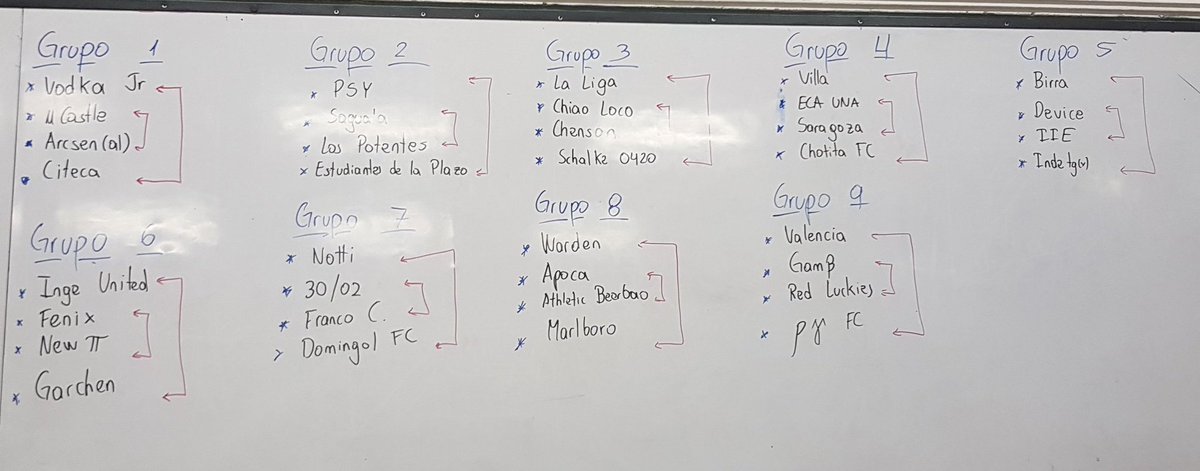 Grupo 1
* Vodka Jr
* U Castle
* Arcsen(al)
* Citeca
Grupo 2
* PSY
* Sagua'a
* Los Potentes
* Estudiantes de la Plazo
Grupo 3
* La Liga
* Chiao Loco
* Chenson
* Schalke 0420
Grupo 4
* Villa
* ECA UNA
* Saragoza
* Chotita FC
Grupo 5
* Birra
* Device
* IIE
Grupo 6
* Inge United
* Fenix
* New π
* Garchen
Grupo 7
* Notti
* 30/02
* Franco C.
* Domingol FC
Grupo 8
* Warden
* Apoca
* Athletic Bearbao
* Marlboro
Grupo 9
* Valencia
* Gamβ
* Red Luckies
* ργ FC